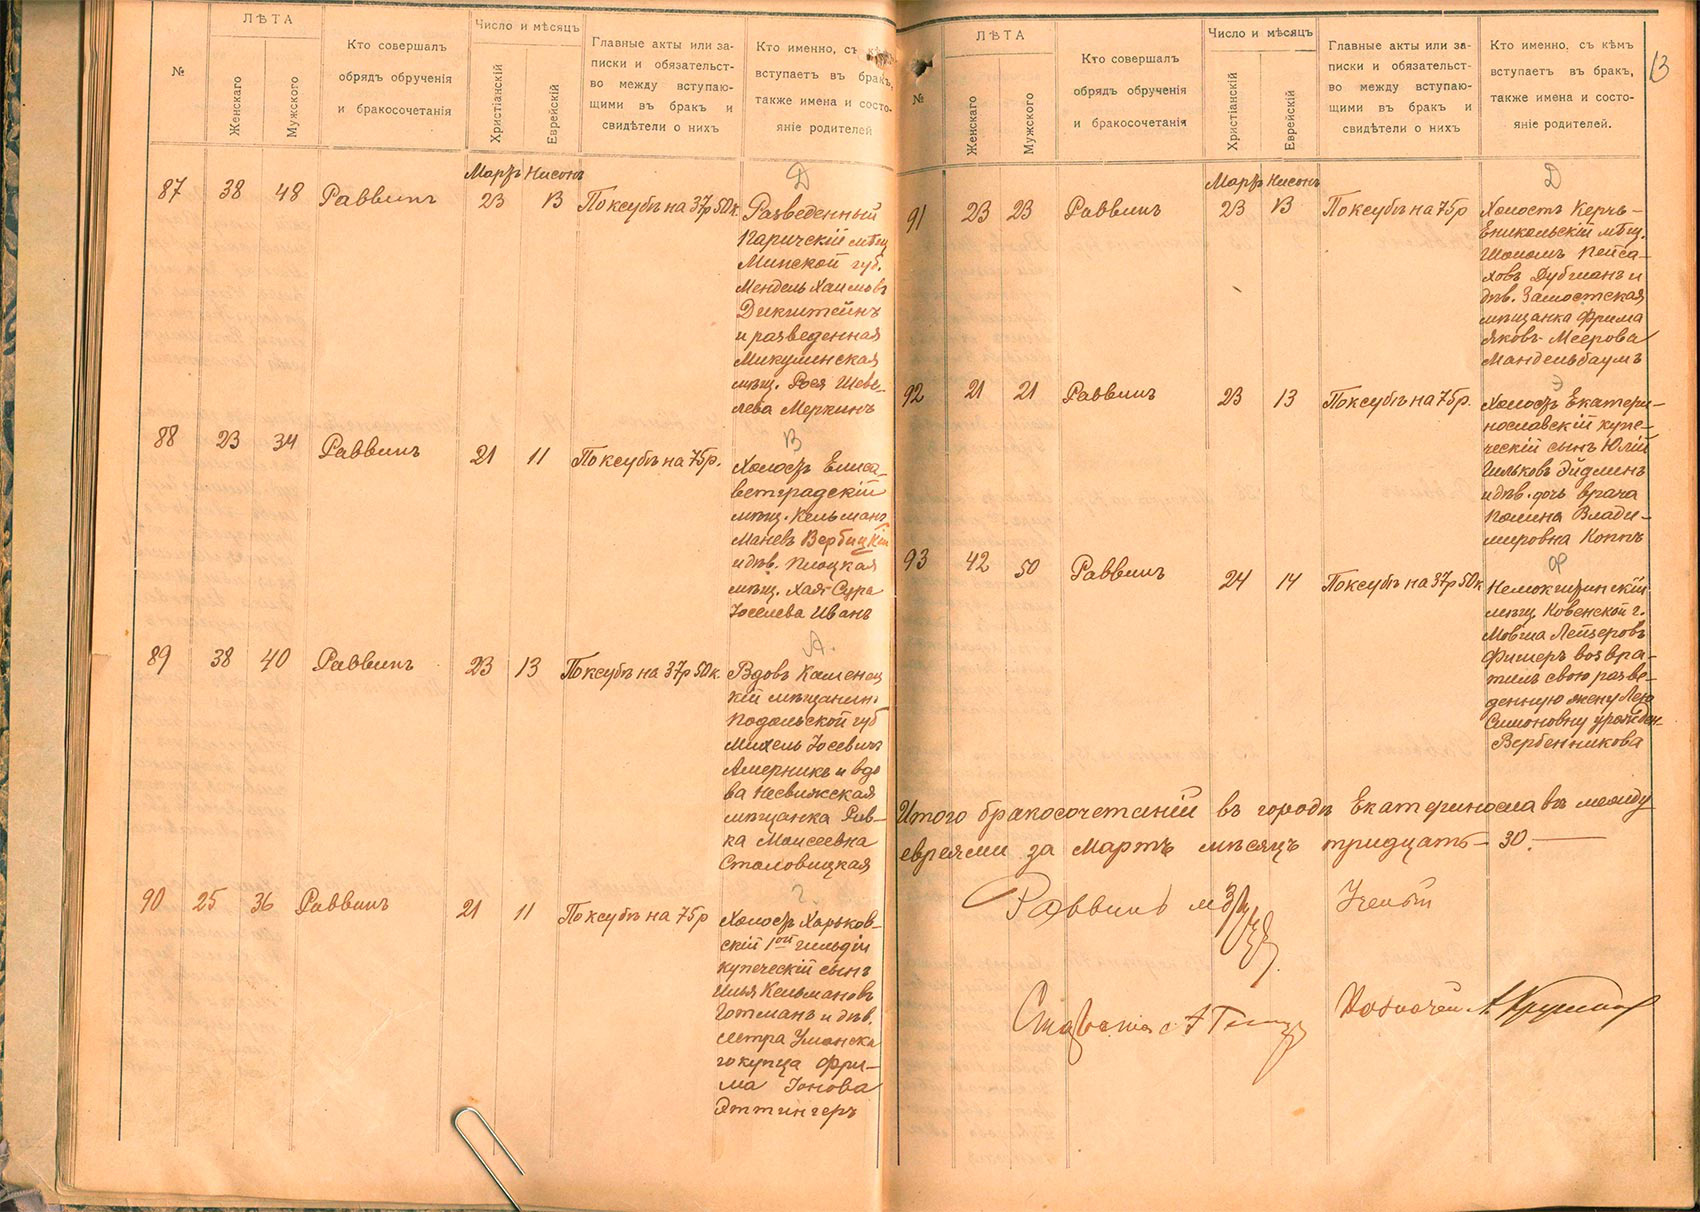 №
ЛѢТА
Женскаго
Мужского
Кто совершалъ
обрядъ обрученія
и бракосочетанія
Число и мѣсяцъ
Христіанскій
Еврейскій
Главные акты или за-
писки и обязательст-
во между вступаю-
щими въ бракъ и
свидѣтели о нихъ
Кто именно, съ кѣмъ
вступаетъ въ бракъ,
также имена и состо-
яніе родителей
Мартъ Нисонъ
87 38 48 Раввинъ 23 13 По ксубѣ на 37р 50к.
Д
Разведенный
Паричскій мѣщ.
Минской губ.
Мендель Хаимовъ
Дикштейнъ
и разведенная
Микулинская
мѣщ. Рося Шеве-
лева Меркинъ
88 23 34 Раввинъ 21 11 По ксубѣ на 75р.
В
Холостъ Елиса-
ветградскій
мѣщ. Кельманъ
Маневъ Вербицкій
и дѣв. Плоцкая
мѣщ. Хая-Сура
Іоселева Иванъ
89 38 40 Раввинъ 23 13 По ксубѣ на 37р 50к.
А.
Вдовъ Каменец
кій мѣщанинъ
Подольской губ
Михель Іосевичъ
Америкъ и вдо
ва Несвижская
мѣщанка Рив-
ка Моисеевка
Столовицкая
90 25 36 Раввинъ 21 11 По ксубѣ на 75р
Г.
Холостъ Харьков-
скій 1ой гильдіи
купеческій сынъ
Илья Кельмановъ
Готманъ и дѣв.
сестра Уманска
го купца Фри-
ма Іонова
Эттингеръ
13
№
ЛѢТА
Женскаго
Мужского
Кто совершалъ
обрядъ обрученія
и бракосочетанія
Число и мѣсяцъ
Христіанскій
Еврейскій
Главные акты или за-
писки и обязательст-
во между вступаю-
щими въ бракъ и
свидѣтели о нихъ
Кто именно, съ кѣмъ
вступаетъ въ бракъ,
также имена и состо-
яніе родителей.
Мартъ Нисонъ
91 23 23 Раввинъ 23 13 По ксубѣ на 75р
Д
Холостъ Керчь-
Еникольскій мѣщ.
Шоломъ Пейса-
ховъ Дубманъ и
дѣв. Замостская
мѣщанка Фрима
Яковъ-Меерова
Мандельбаумъ
92 21 21 Раввинъ 23 13 По ксубѣ на 75р.
Э
Холостъ Екатери-
нославскій купе-
ческій сынъ Юлій
Гильковъ Эйдлинъ
и дѣв. дочь врача
Полина Влади-
мировна Коппъ
93 42 50 Раввинъ 24 14 По ксубѣ на 37р 50к
Ф
мѣщ Ковенской г.
Мовша Лейзеровъ
Фишеръ возвра-
тилъ свою разве-
денную жену Лею
Симоновну урожден.
Вербенникова
Итого бракосочетаній въ городѣ Екатеринославѣ между
евреями за Мартъ мѣсяцъ тридцать- 30.
Раввинъ Ученый
Староста Казначей